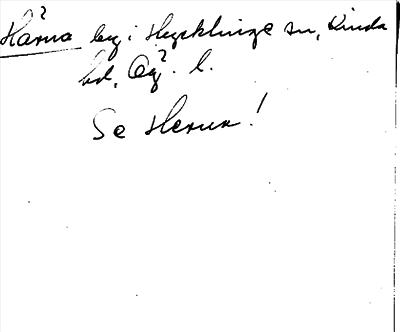 Härna by i Hycklinge sn, Kinda
hd, Ög. l.
Se Herna!